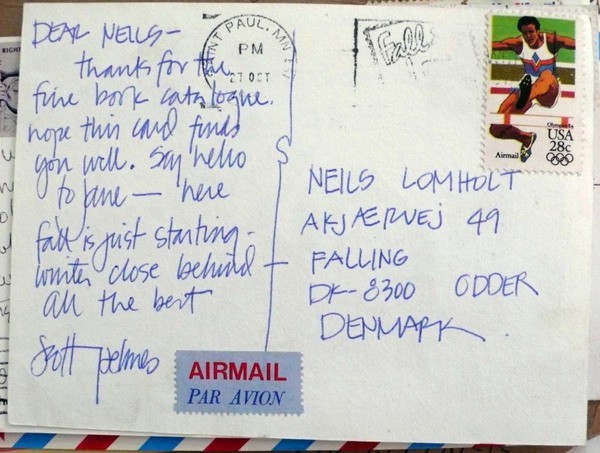 DEAR NEILS-
thanks for the
fine book catalogue.
hope this card finds
you well. Say hello
to Jane — here
fall is just starting -
winter close behind -
all the best
Scott Helmes
SAINT PAUL, MN
PM
27 OCT
Fall
Olympics 84
USA
28c
Airmail
NEILS LOMHOLT
AKJÆRVEJ 49
FALLING
DK-8300 ODDER
DENMARK
AIRMAIL
PAR AVION
RIGHT